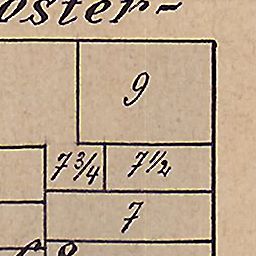 oster-
9
7¾ 7½
7
8